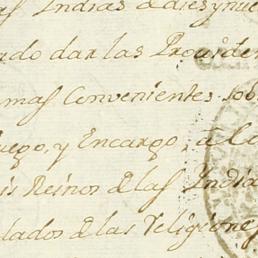 las Indias a dies y nue
ado dar las Providen
mas Convenientes sob
uego, y Encargo, a l
is Reinos de las India
lados de las Religione